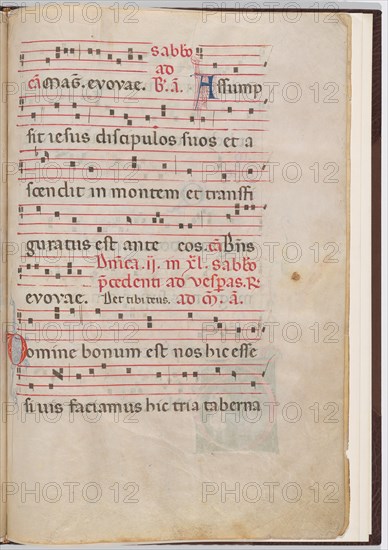 sabbo
ad
cā Mag̃. evovae. B̃. ā. Assump
sit iesus discipulos suos et a
scendit in montem et transfi
guratus est ante eos. cā Bñs
Dnīca. ii. in xl. sabbo
evovae. p̄cedenti ad vesp̃as. R.
Per tibi tens. ad M̃. ā.
Domine bonum est nos hic esse
si vis faciamus hic tria taberna
PHOTO 12